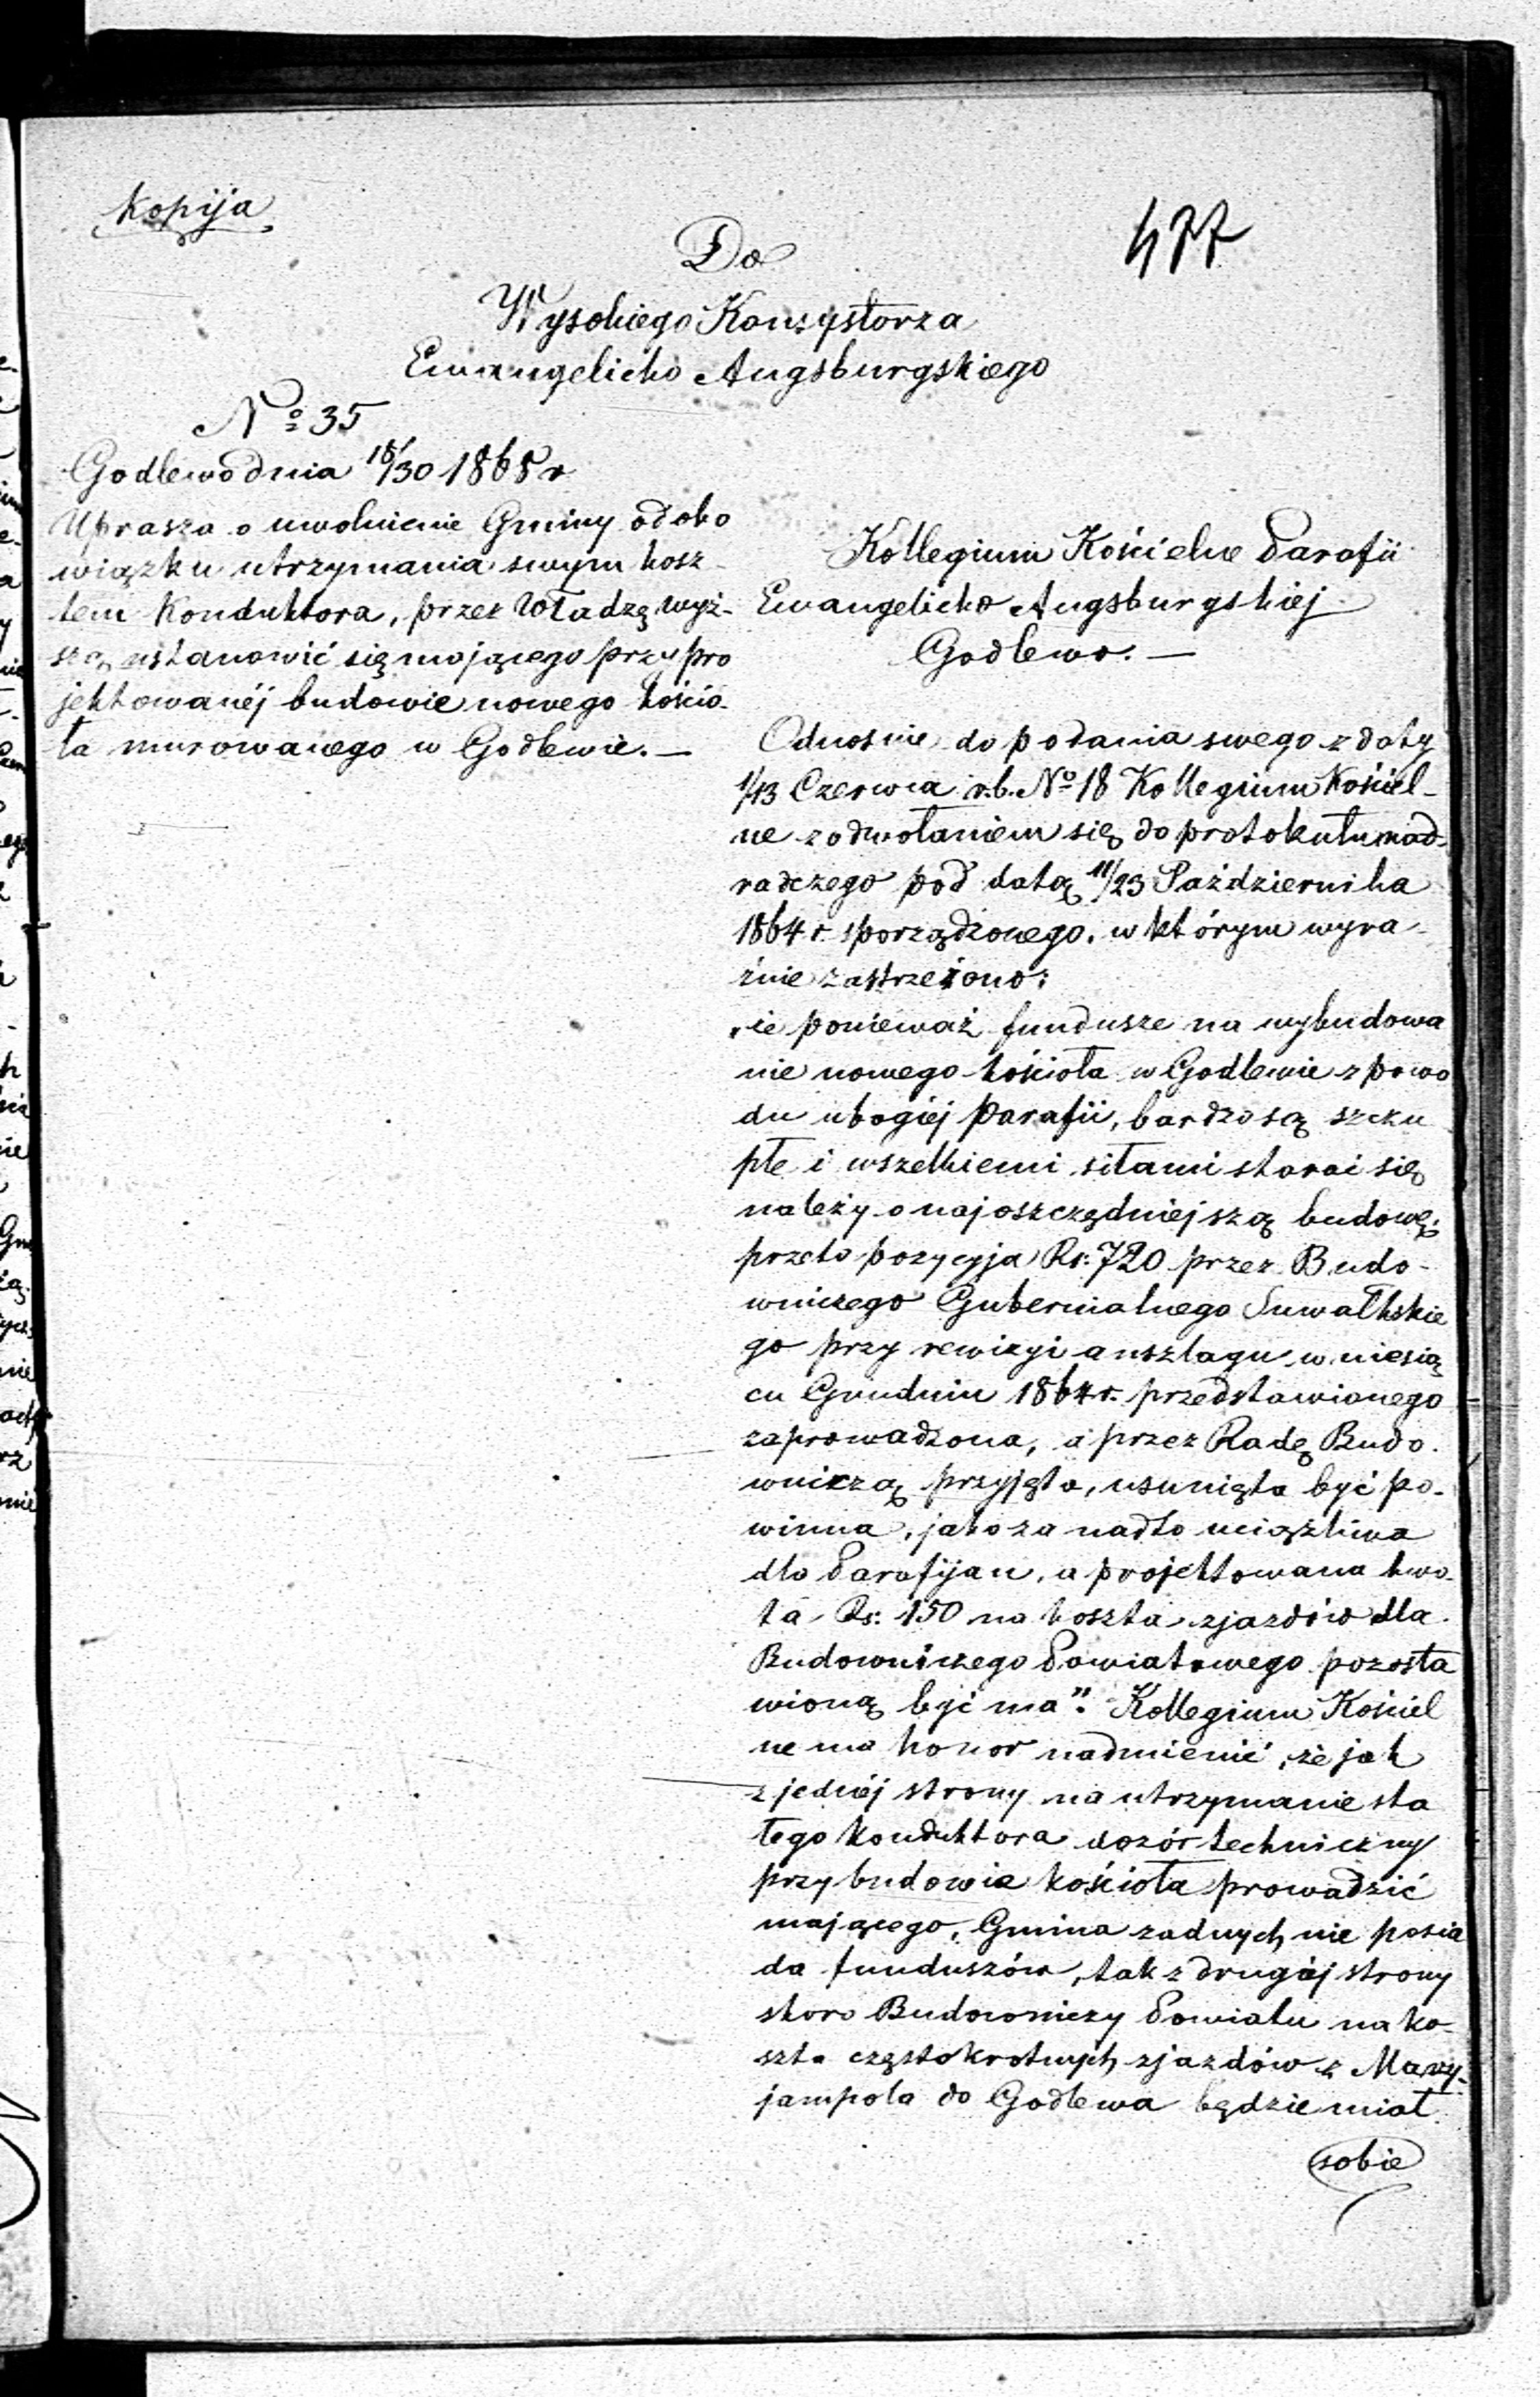 Kopija
477
Do
Wysokiego Konsystorza
Ewangelicko Augsburgskiego
Nº 35
Godlewo dnia 18/30 1865 r
Uprasza o uwolnienie Gminy od obo
wiązku utrzymania swym kosz-
tem Konduktora, przez Władzę wyż-
szą ustanowić się mającego przy pro
jektowanéj budowie nowego kościo-
ła murowanego w Godlewie. —
Kollegium Kościelne Parafii
Ewangelicko Augsburgskiéj
Godlewo. —
Odnośnie do podania swego z daty
1/13 Czerwca r.b. Nº 18 Kollegium Kościel-
ne z odwołaniem się do protokułu nad-
radczego pod datą 11/23 Października
1864 r. sporządzonego, w którym wyra-
źnie zastrzeżono:
„że ponieważ fundusze na wybudowa
nie nowego kościoła w Godlewie z powo
du ubogiéj Parafii, bardzo są szczu
płe i wszelkiemi siłami starać się
należy o najoszczędniejszą budowę;
przeto pozycyja Rs: 720 przez Budo-
wniczego Gubernialnego Suwałkskie
go przy rewizyi anszlagu w miesią
cu Grudniu 1864 r. przedstawionego
zaprowadzona, a przez Radę Budo-
wniczą przyjęta, usunięta być po-
winna, jako za nadto uciążliwa
dla Parafijan, a projektowana kwo-
ta Rs: 150 na koszta zjazdów dla
Budowniczego Powiatowego pozosta
wioną być ma". Kollegium Kościel
ne ma honor nadmienić, że jak
z jednéj strony na utrzymanie sta
łego konduktora dozór techniczny
przy budowie kościoła prowadzić
mającego, Gmina żadnych nie posia
da funduszów, tak z drugiéj strony
skoro Budowniczy Powiatu na ko-
szta częstokrotnych zjazdów z Mary-
jampola do Godlewa będzie miał
sobie